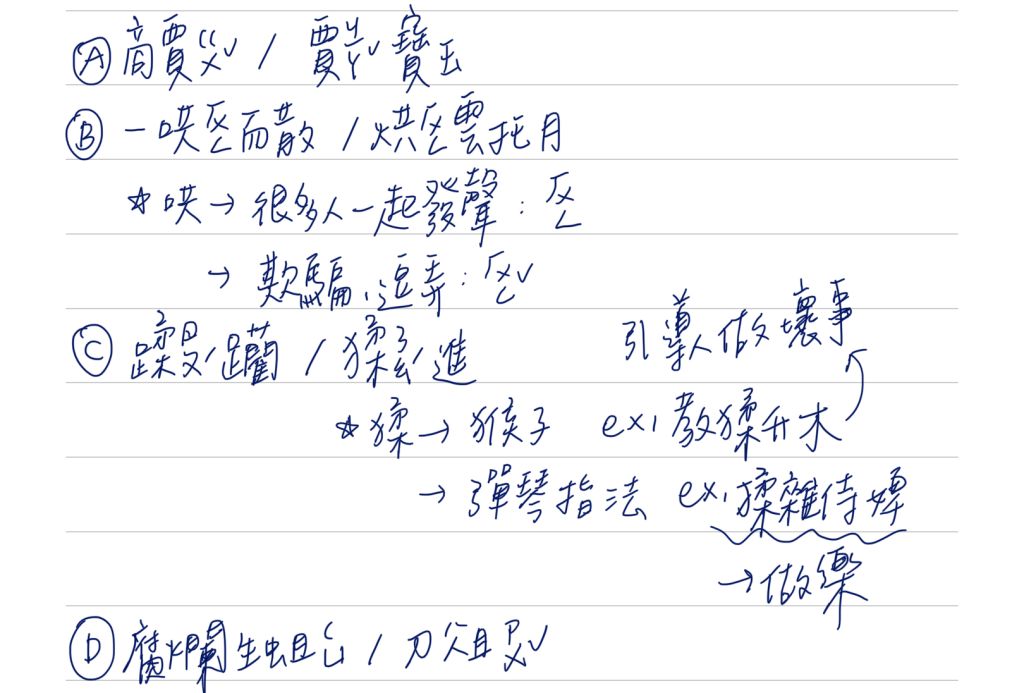 Ⓐ 商賈ㄍㄨˇ / 賈ㄐㄧㄚˇ寶玉
Ⓑ 一哄ㄏㄨㄥ而散 / 烘ㄏㄨㄥ雲托月
☆哄→很多人一起發聲:ㄏㄨㄥ
→欺騙、逗弄:ㄏㄨㄥˇ
Ⓒ 蹂ㄖㄡˊ躪 / 猱ㄋㄠˊ進
引導人做壞事
☆猱→猴子 ex, 教猱升木
→彈琴指法 ex, 猱雜侍婢
→做樂
Ⓓ 腐爛生蛆ㄑㄩ / 刀俎ㄗㄨˇ